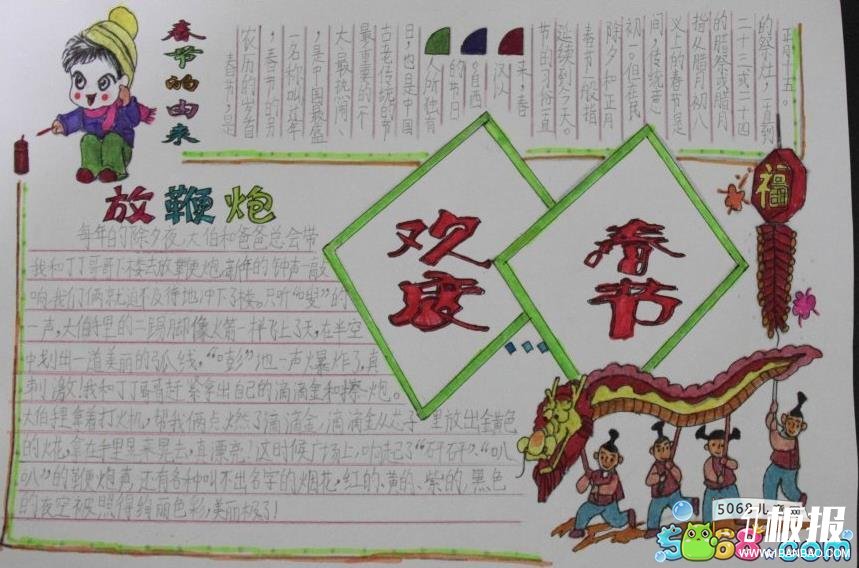 春节的由来
春节,是
农历的岁首
,春节的另
一名称叫过年
,是中国最盛
大、最热闹、
最重要的一个
古老传统的节
日,也是中国
人所独有
的节日
。自西
汉以
来,春
节的习俗一直
延续到今天。
春节一般指
除夕和正月
初一。但在民
间,传统意
义上的春节是
指从腊月初八
的腊祭或腊月
二十三或二十四
的祭灶,一直到
正月十五。
放鞭炮
每年的除夕夜,大伯和爸爸总会带
我和丁丁哥哥下楼去放鞭炮,新年的钟声一敲
响,我们俩就迫不及待地冲下了楼。只听"嗖"的
一声,大伯手里的二踢脚像火箭一样飞上了天,在半空
中划出一道美丽的弧线,"嘭"地一声爆炸了,真
刺激!我和丁丁哥哥赶紧拿出自己的滴滴金和擦炮。
大伯手里拿着打火机,帮我俩点燃了滴滴金,滴滴金从芯子里放出金黄色
的火花,拿在手里晃来晃去,真漂亮!这时候广场上,响起了"砰砰""叭
叭"的鞭炮声,还有各种叫不出名字的烟花,红的、黄的、紫的,黑色
的夜空被照得绚丽色彩,美丽极了!
欢度
春节
福
5068儿童网
板报
5068.com
WWW.41BANBAO.COM